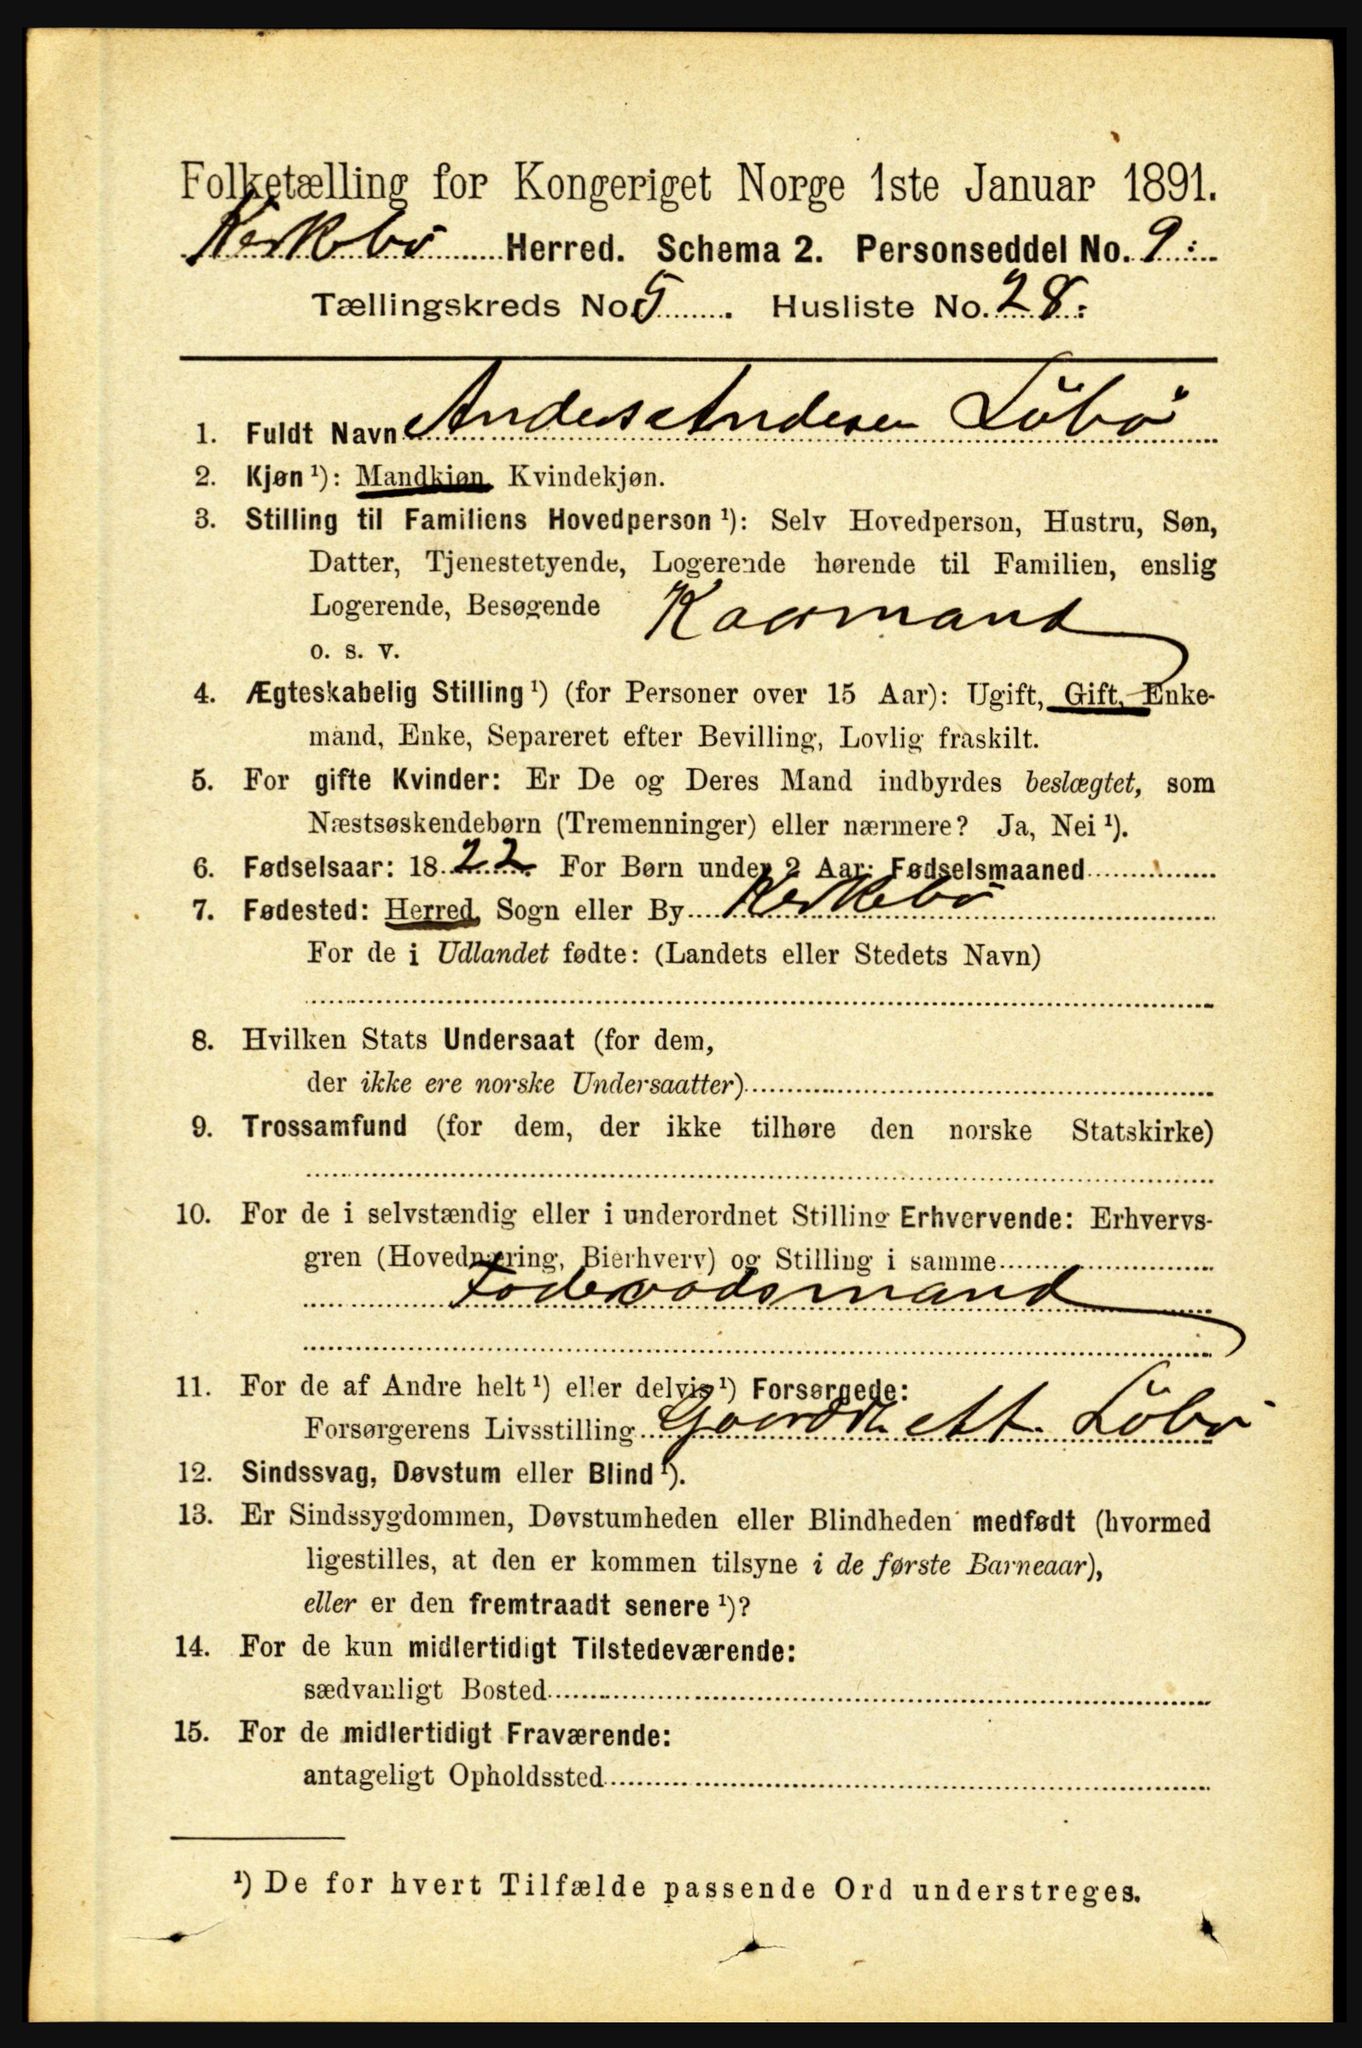 Folketælling for Kongeriget Norge 1ste Januar 1891.
Kirkebø Herred. Schema 2. Personseddel No. 9
Tællingskreds No. 5. Husliste No. 28.
1. Fuldt Navn Anders Andersen Løbø
2. Kjøn ¹): Mandkjøn, Kvindekjøn.
3. Stilling til Familiens Hovedperson ¹): Selv Hovedperson, Hustru, Søn,
Datter, Tjenestetyende, Logerende hørende til Familien, enslig
Logerende, Besøgende Kaarmand
o. s. v.
4. Ægteskabelig Stilling ¹) (for Personer over 15 Aar): Ugift, Gift, Enke-
mand, Enke, Separeret efter Bevilling, Lovlig fraskilt.
5. For gifte Kvinder: Er De og Deres Mand indbyrdes beslægtet, som
Næstsøskendebørn (Tremenninger) eller nærmere? Ja, Nei ¹).
6. Fødselsaar: 1822. For Børn under 2 Aar: Fødselsmaaned
7. Fødested: Herred, Sogn eller By Kirkebø
For de i Udlandet fødte: (Landets eller Stedets Navn)
8. Hvilken Stats Undersaat (for dem,
der ikke ere norske Undersaatter)
9. Trossamfund (for dem, der ikke tilhøre den norske Statskirke)
10. For de i selvstændig eller i underordnet Stilling Erhvervende: Erhvervs-
gren (Hovednæring, Bierhverv) og Stilling i samme
Foderaadsmand
11. For de af Andre helt ¹) eller delvis ¹) Forsørgede:
Forsørgerens Livsstilling Løbø
12. Sindssvag, Døvstum eller Blind ¹).
13. Er Sindssygdommen, Døvstumheden eller Blindheden medfødt (hvormed
ligestilles, at den er kommen tilsyne i de første Barneaar),
eller er den fremtraadt senere ¹)?
14. For de kun midlertidigt Tilstedeværende:
sædvanligt Bosted
15. For de midlertidigt Fraværende:
antageligt Opholdssted
¹) De for hvert Tilfælde passende Ord understreges.